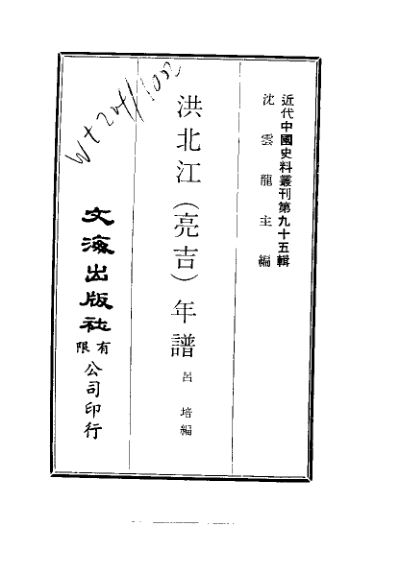 近代中國史料叢刊第九十五輯
沈雲龍主編
洪北江(亮吉)年譜
呂培編
文海出版社
有限
公司印行